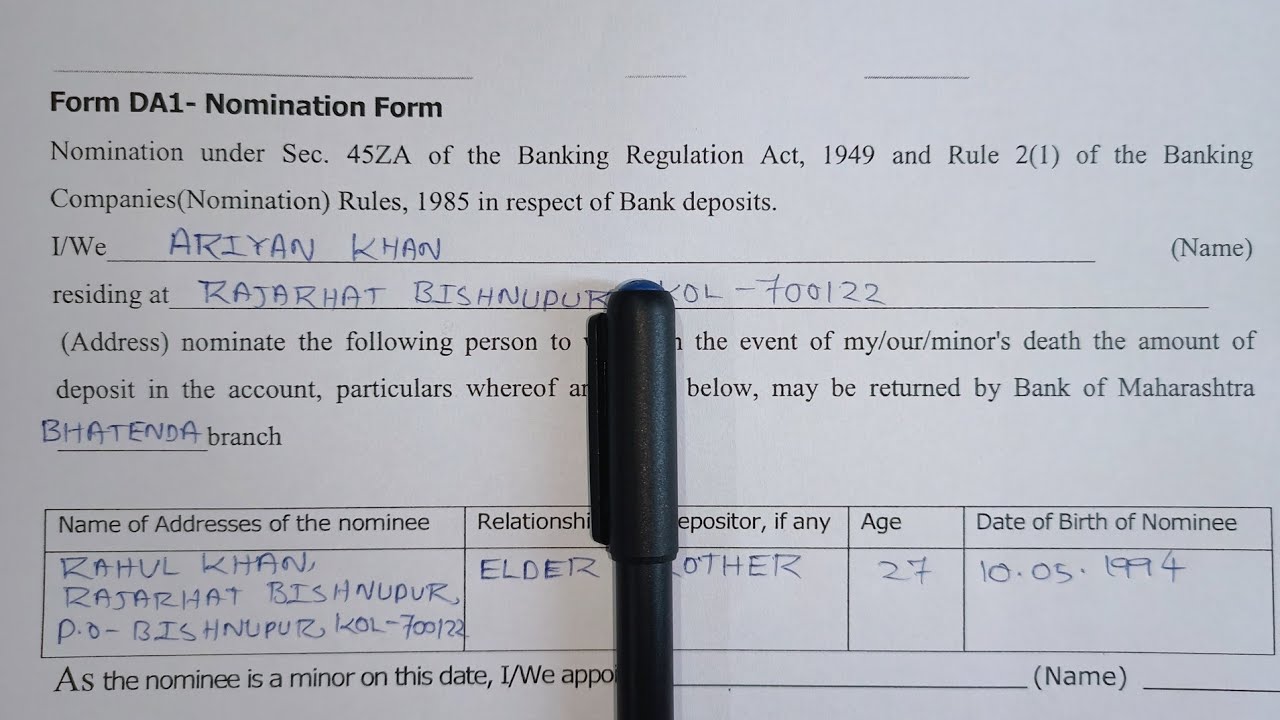 Form DA1- Nomination Form
Nomination under Sec. 45ZA of the Banking Regulation Act, 1949 and Rule 2(1) of the Banking
Companies(Nomination) Rules, 1985 in respect of Bank deposits.
I/We ARIYAN KHAN (Name)
residing at RAJARHAT BISHNUPUR KOL-700122
(Address) nominate the following person to the event of my/our/minor's death the amount of
deposit in the account, particulars whereof below, may be returned by Bank of Maharashtra
BHATENDA branch
Name of Addresses of the nominee Depositor, if any Age Date of Birth of Nominee
RAHUL KHAN, ELDER 27 10.05.1994
RAJARHAT BISHNUPUR,
P.O- BISHNUPUR, KOL-700122
As the nominee is a minor on this date, I/We (Name)